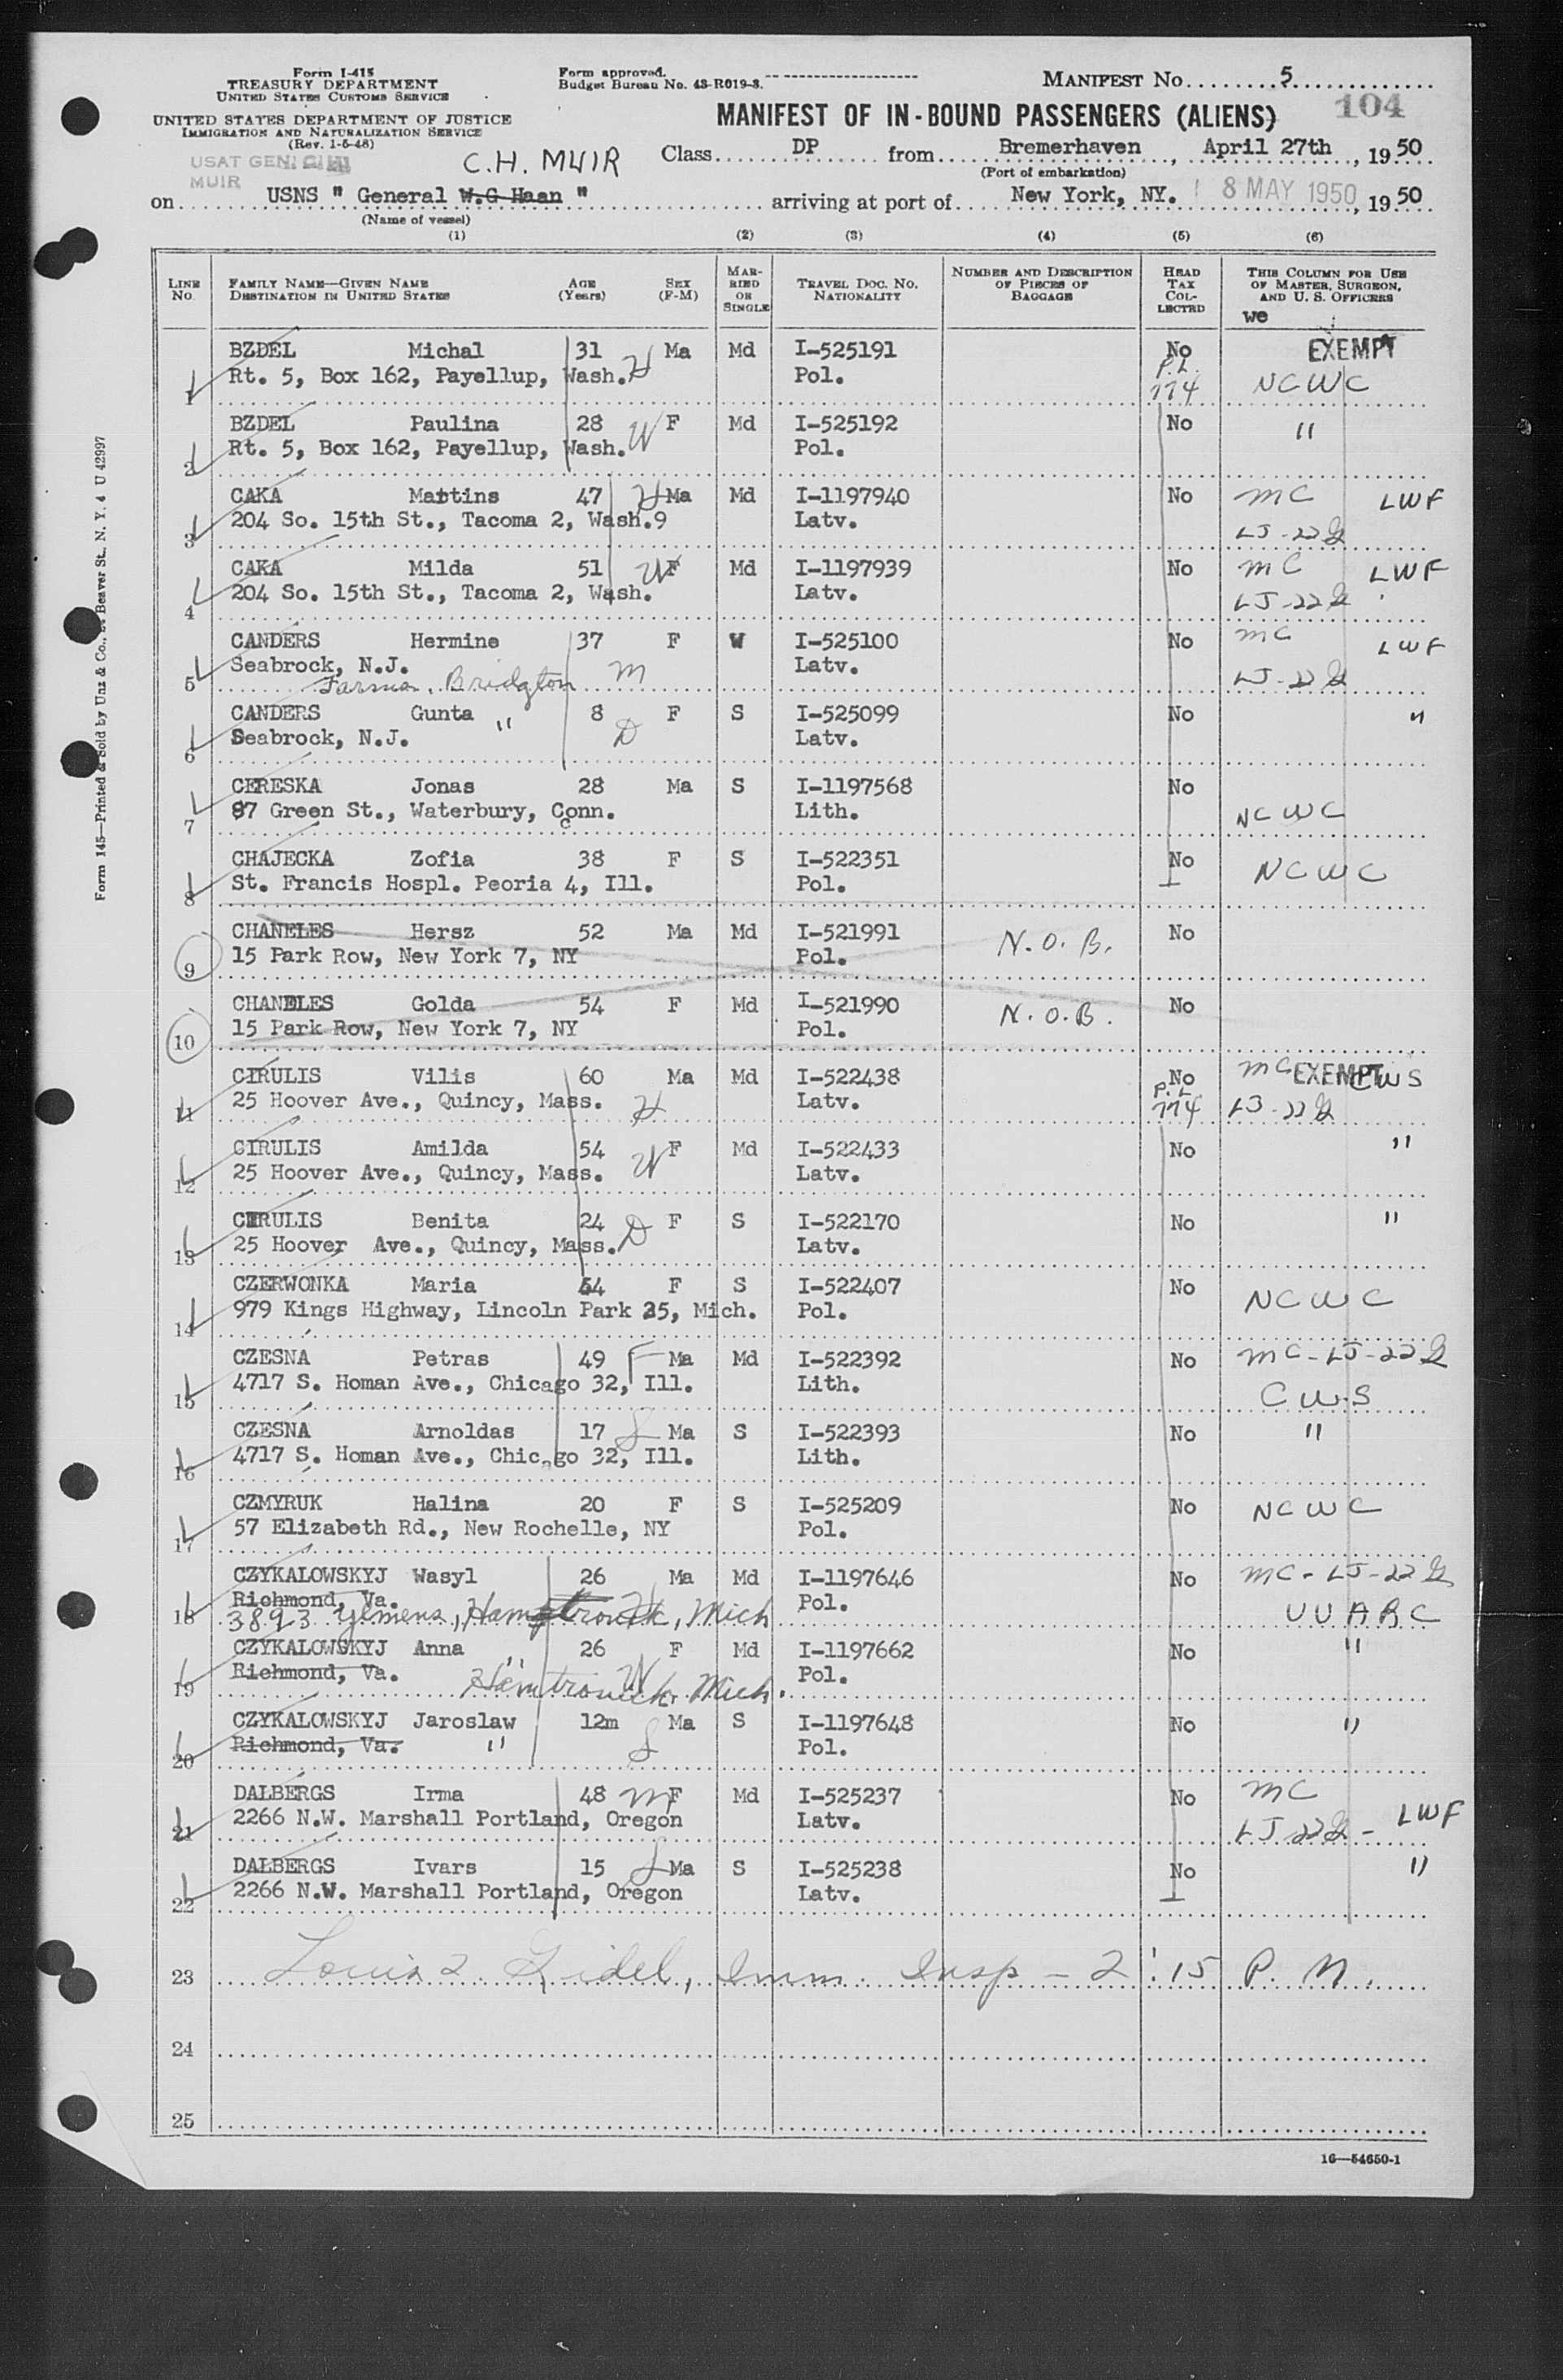 Form I-415
TREASURY DEPARTMENT
UNITED STATES CUSTOMS SERVICE
UNITED STATES DEPARTMENT OF JUSTICE
IMMIGRATION AND NATURALIZATION SERVICE
(Rev. 1-5-48)
Form approved.
Budget Bureau No. 43-R019-3.
MANIFEST NO. 5
104
MANIFEST OF IN-BOUND PASSENGERS (ALIENS)
USAT GEN.
MUIR
C.H. MUIR
Class DP from Bremerhaven, April 27th, 1950
(Port of embarkation)
on USNS " General W.G Haan " arriving at port of New York, NY. 8 MAY 1950, 1950
(Name of vessel)
(1) (2) (3) (4) (5) (6)
LINE No. FAMILY NAME—GIVEN NAME DESTINATION IN UNITED STATES AGE (Years) SEX (F-M) MARRIED OR SINGLE TRAVEL DOC. NO. NATIONALITY NUMBER AND DESCRIPTION OF PIECES OF BAGGAGE HEAD TAX COLLECTED THIS COLUMN FOR USE OF MASTER, SURGEON, AND U. S. OFFICERS
we
BZDEL Michal 31 H Ma Md I-525191 No EXEMPT
1 Rt. 5, Box 162, Payellup, Wash. Pol. P.L. 774 NCWC
BZDEL Paulina 28 W F Md I-525192 No "
2 Rt. 5, Box 162, Payellup, Wash. Pol.
CAKA Martins 47 H Ma Md I-1197940 No MC LWF
3 204 So. 15th St., Tacoma 2, Wash.9 Latv. LJ-22
CAKA Milda 51 W F Md I-1197939 No MC LWF
4 204 So. 15th St., Tacoma 2, Wash. Latv. LJ-22
CANDERS Hermine 37 F W I-525100 No MC LWF
Seabrock, N.J. Latv.
5 Farms, Bridgton M LJ-22
CANDERS Gunta " 8 F S I-525099 No "
6 Seabrock, N.J. D Latv.
CERESKA Jonas 28 Ma S I-1197568 No
7 87 Green St., Waterbury, Conn. Lith. NCWC
CHAJECKA Zofia 38 F S I-522351 No NCWC
8 St. Francis Hospl. Peoria 4, Ill. Pol.
CHANELES Hersz 52 Ma Md I-521991 N.O.B. No
9 15 Park Row, New York 7, NY Pol.
CHANELES Golda 54 F Md I-521990 N.O.B. No
10 15 Park Row, New York 7, NY Pol.
CIRULIS Vilis 60 Ma Md I-522438 No MC EXEMPT CWS
11 25 Hoover Ave., Quincy, Mass. H Latv. P.L. 774 LJ-22
CIRULIS Amilda 54 W F Md I-522433 No "
12 25 Hoover Ave., Quincy, Mass. Latv.
CIRULIS Benita 24 D F S I-522170 No "
13 25 Hoover Ave., Quincy, Mass. Latv.
CZERWONKA Maria 54 F S I-522407 No NCWC
14 979 Kings Highway, Lincoln Park 25, Mich. Pol.
CZESNA Petras 49 F Ma Md I-522392 No MC-LJ-22
15 4717 S. Homan Ave., Chicago 32, Ill. Lith. CWS
CZESNA Arnoldas 17 S Ma S I-522393 No "
16 4717 S. Homan Ave., Chicago 32, Ill. Lith.
CZMYRUK Halina 20 F S I-525209 No NCWC
17 57 Elizabeth Rd., New Rochelle, NY Pol.
CZYKALOWSKYJ Wasyl 26 H Ma Md I-1197646 No MC-LJ-22
Richmond, Va. Pol.
18 3893 Yemens, Hamtramck, Mich UUARC
CZYKALOWSKYJ Anna " 26 W F Md I-1197662 No "
19 Richmond, Va. Hamtromick, Mich. Pol.
CZYKALOWSKYJ Jaroslaw 12m Ma S I-1197648 No "
20 Richmond, Va. " S Pol.
DALBERGS Irma 48 M F Md I-525237 No MC LWF
21 2266 N.W. Marshall Portland, Oregon Latv. LJ-22
DALBERGS Ivars 15 S Ma S I-525238 No "
22 2266 N.W. Marshall Portland, Oregon Latv.
23 Louis Imm. Insp - 2:15 P.M.
24
25
16—54650-1
Form 145—Printed & Sold by Unz & Co., Beaver St. N. Y. 4 U 42997